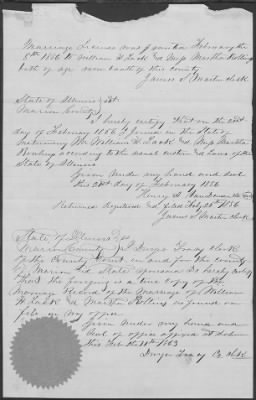 Marriage License was granted February the
8th 1856 to William H. Lack and Miss Martha Rollins
both of age and both of this county
James S. Martin clerk
State of Illinois } Sct.
Marion County }
I hereby certify that on the 21st
day of February 1856 I Joined in the State of
matrimony Mr William H. Lack and Miss Martha
according to the usual custom and laws of the
State of Illinois
Given under my hand and seal
this 21st day of February 1856
Henry
Returned Registered and filed Feby 25th 1856
James S Martin clerk
State of Illinois } ss
Marion County } I Dwyer Tracy clerk
of the County Court in and for the county
of Marion and State aforesaid do hereby certify
that the foregoing is a true copy of the
marriage Record of the marriage of William
H Lack and Martha Rollins as found on
file in my office
Given under my hand and
Seal of office affixed at Salem
this Feb the 11th 1863
Dwyer Tracy Co. Clerk